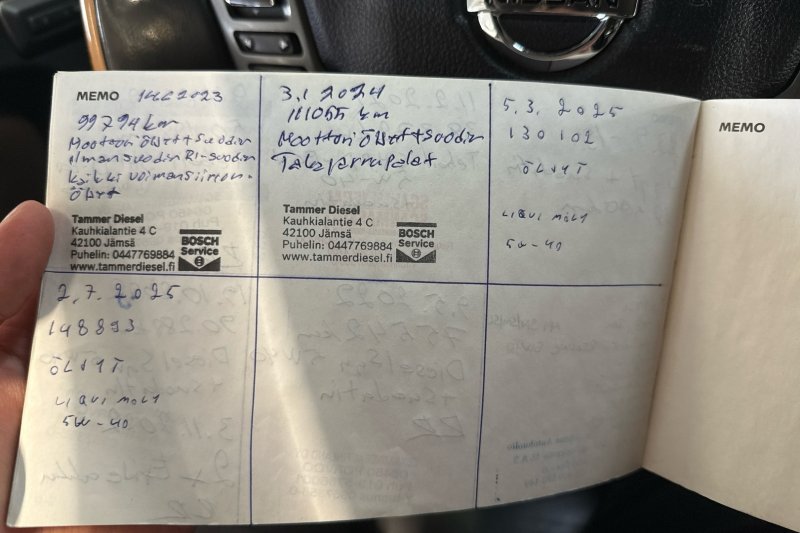 NISSAN
MEMO 14.6.2023
99794 km
Moottori Öljyt + Suodin
Ilmansuodin RI-suodin
Kaikki voimansiirron.
Öljyt
Tammer Diesel
Kauhkialantie 4 C
42100 Jämsä
Puhelin: 0447769884
www.tammerdiesel.fi
BOSCH
Service
3.1 2024
111055 km
Moottori Öljyt + suodin
Takajarrupalat
Tammer Diesel
Kauhkialantie 4 C
42100 Jämsä
Puhelin: 0447769884
www.tammerdiesel.fi
BOSCH
Service
5.3. 2025
130102
ÖLJYT
LIQUI MOLY
5W-40
2.7.2025
148893
ÖLJYT
LIQUI MOLY
5W-40
MEMO